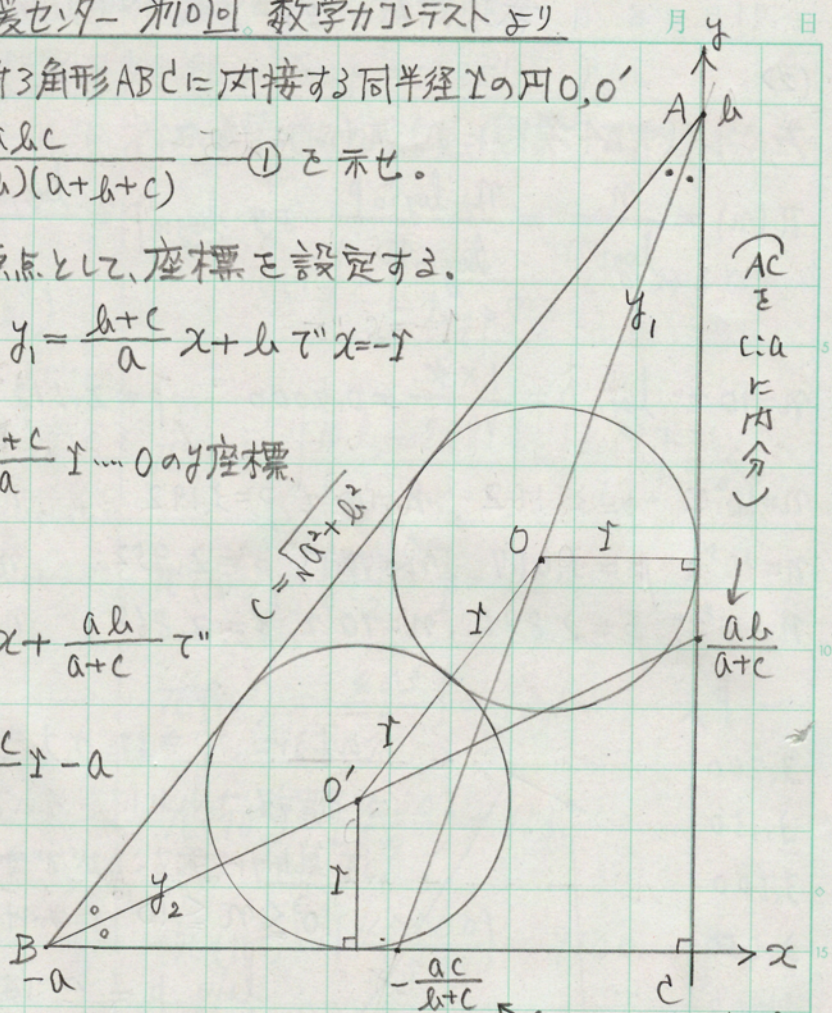 援センター 第10回 数学力コンテスト より
月 日
角形ABCに内接する同半径rの円O,O′
abc
)(a+b+c) ―① を示せ。
点として、座標を設定する。
y₁ = (b+c)/a x+b で x=-r
+c/a r … Oのy座標
c=√a²+b²
x+ ab/(a+c) で
c r-a
y
A b
y₁
ACをc:aに内分
O r
r
r
ab/(a+c)
O′
r
y₂
B
-a
-ac/(b+c)
C
x
5
10
15